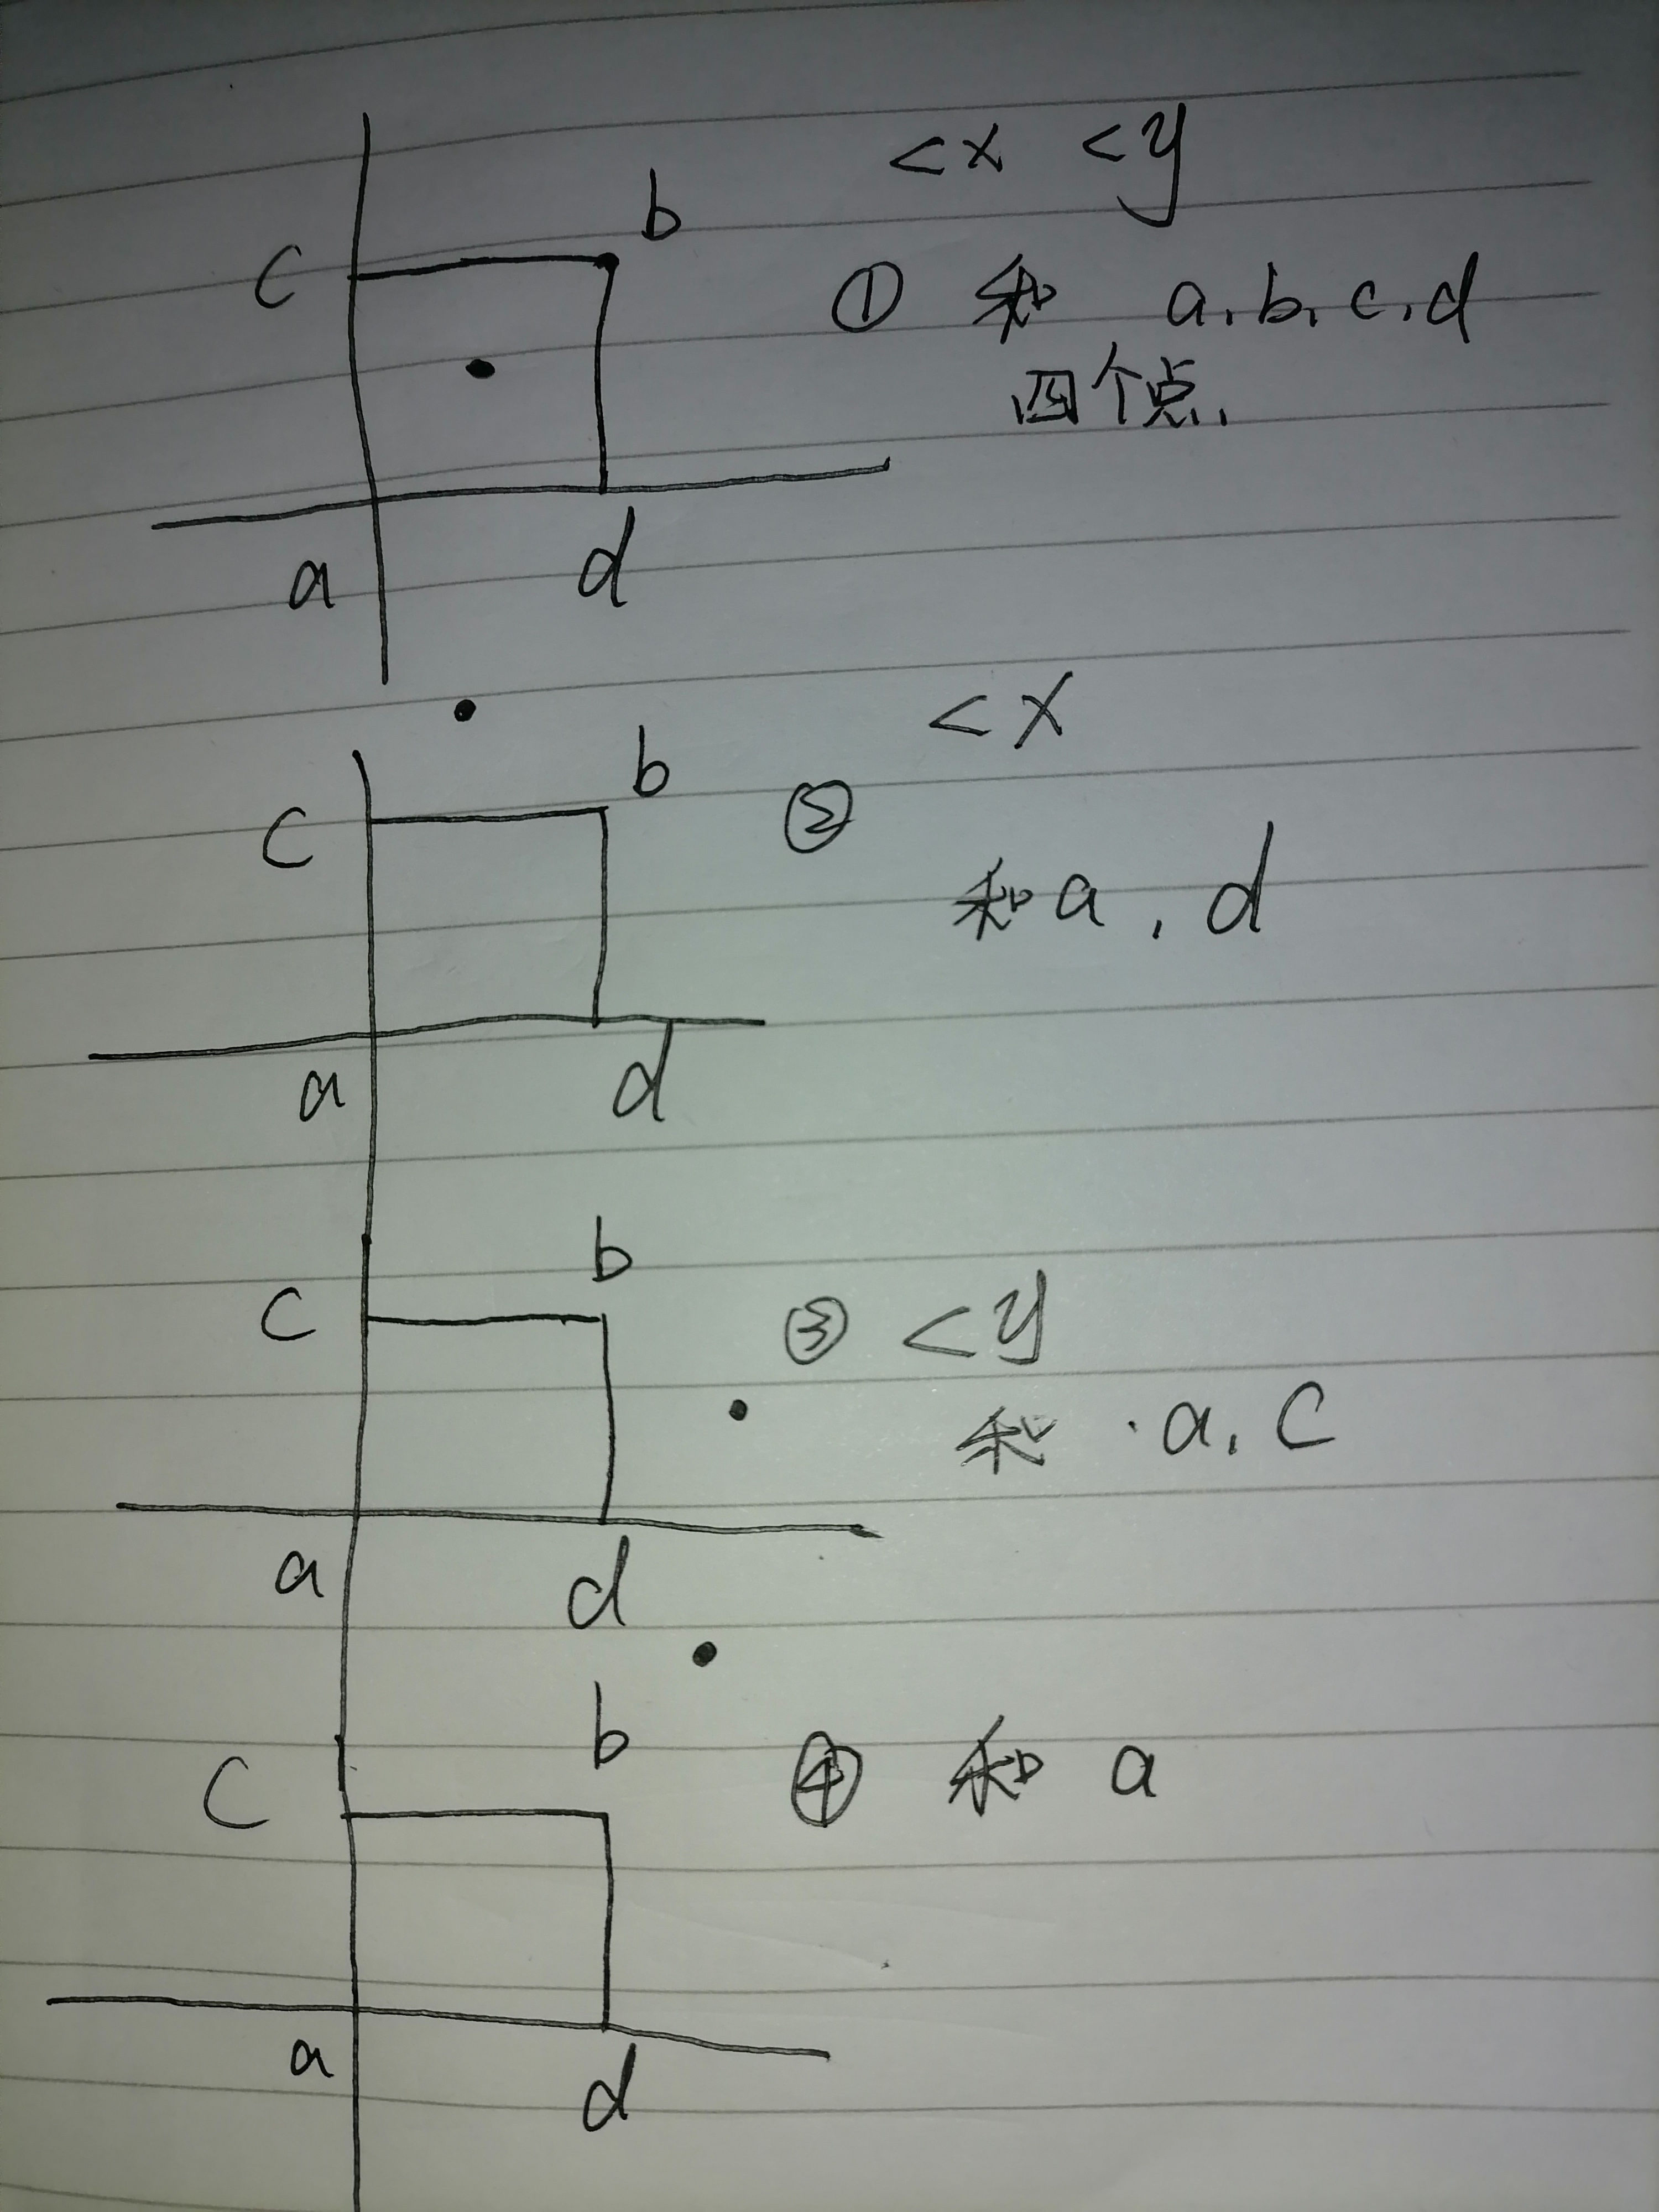 <x <y
b
c
① 和 a, b, c, d
四个点,
a d
<x
b
c ②
和 a , d
a d
b
c ③ <y
和 · a, c
a d
b
c ④ 和 a
a d